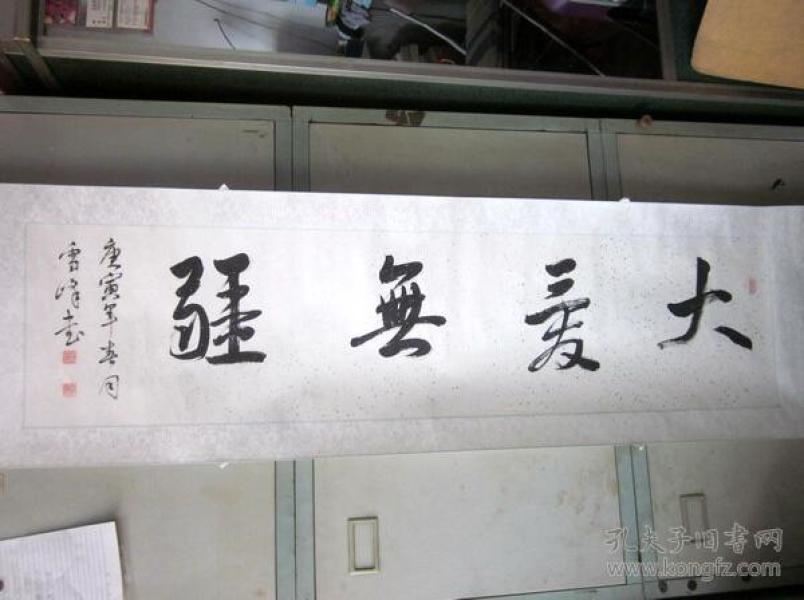 大爱無疆
庚寅年春月
雪峰书
孔夫子旧书网
www.kongfz.com